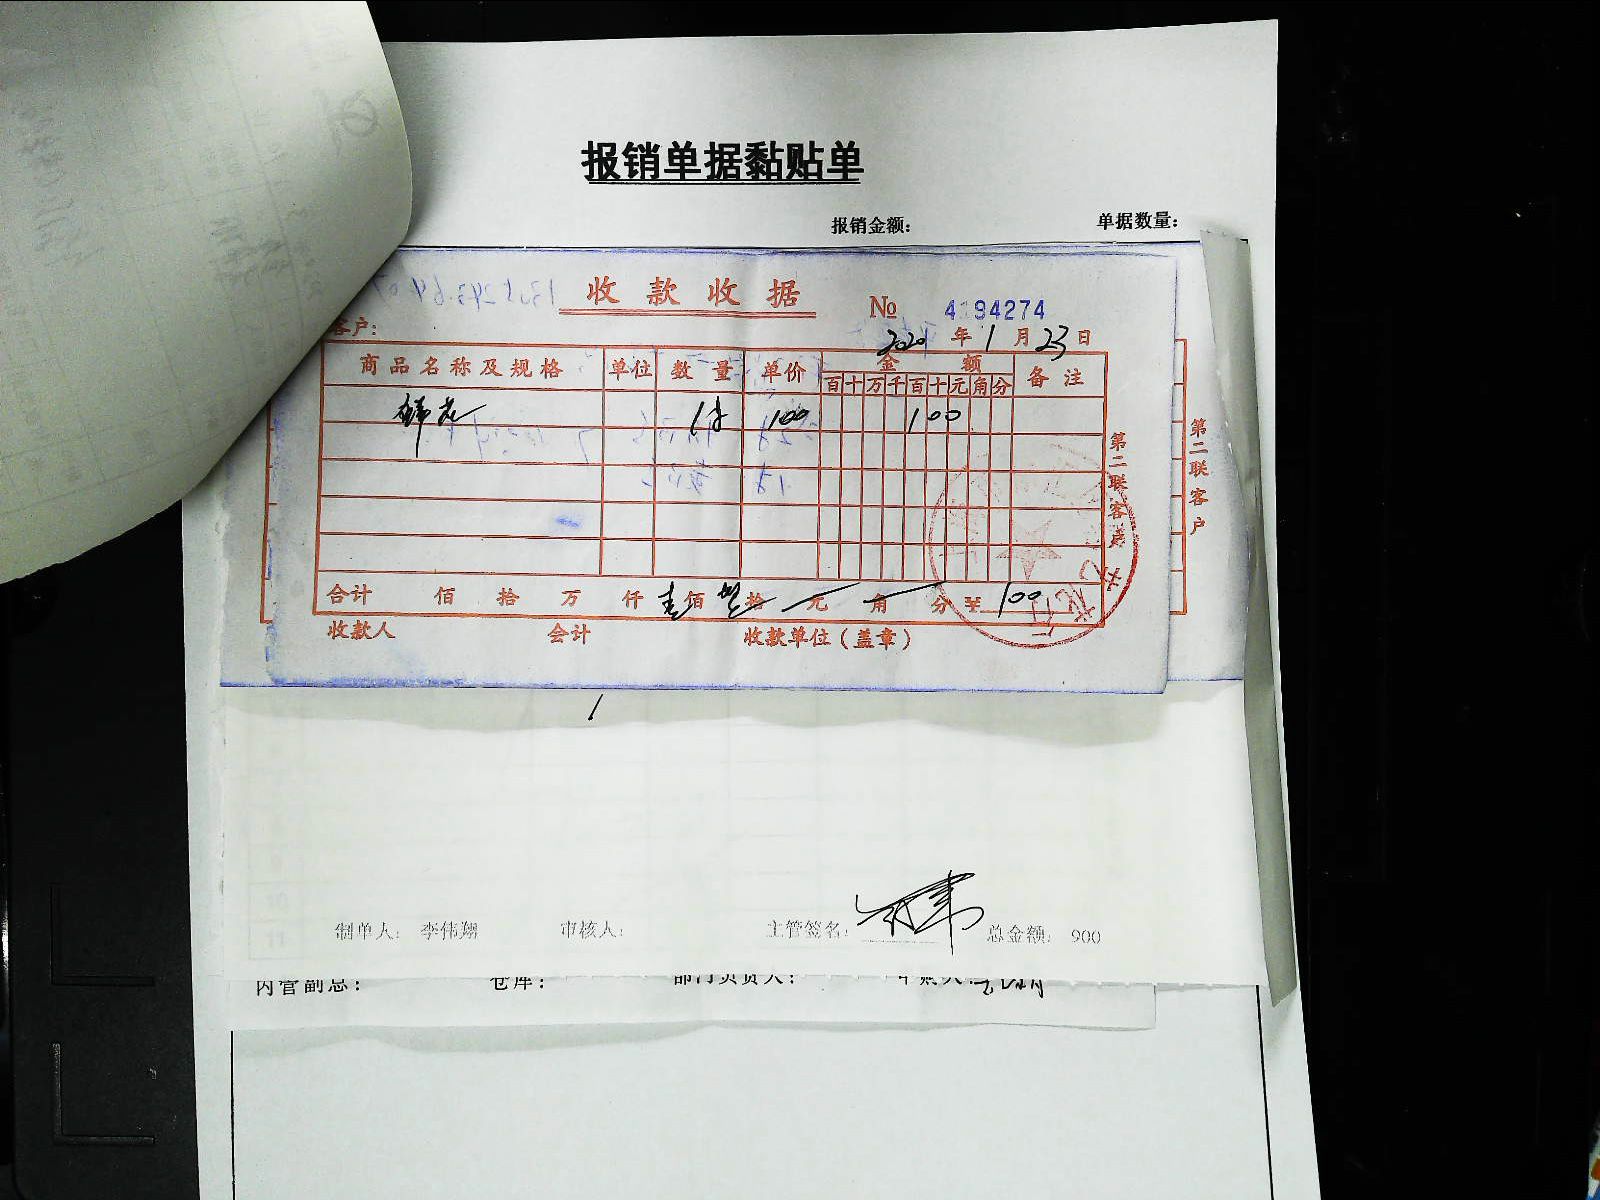 报销单据黏贴单
报销金额： 单据数量：
收款收据
№ 4194274
客户： 2020 年 1 月 23 日
商品名称及规格 单位 数量 单价 金额 备注
百 十 万 千 百 十 元 角 分
鲜花 100 100
第二联客户
第二联客户
合计 佰 拾 万 仟 壹 佰 零 拾 元 角 分 ¥ 100
收款人 会计 收款单位（盖章）
9
10
11
制单人： 李伟翔 审核人： 主管签名： 总金额： 900
内管副总： 仓库： 部门负责人： 申购人：